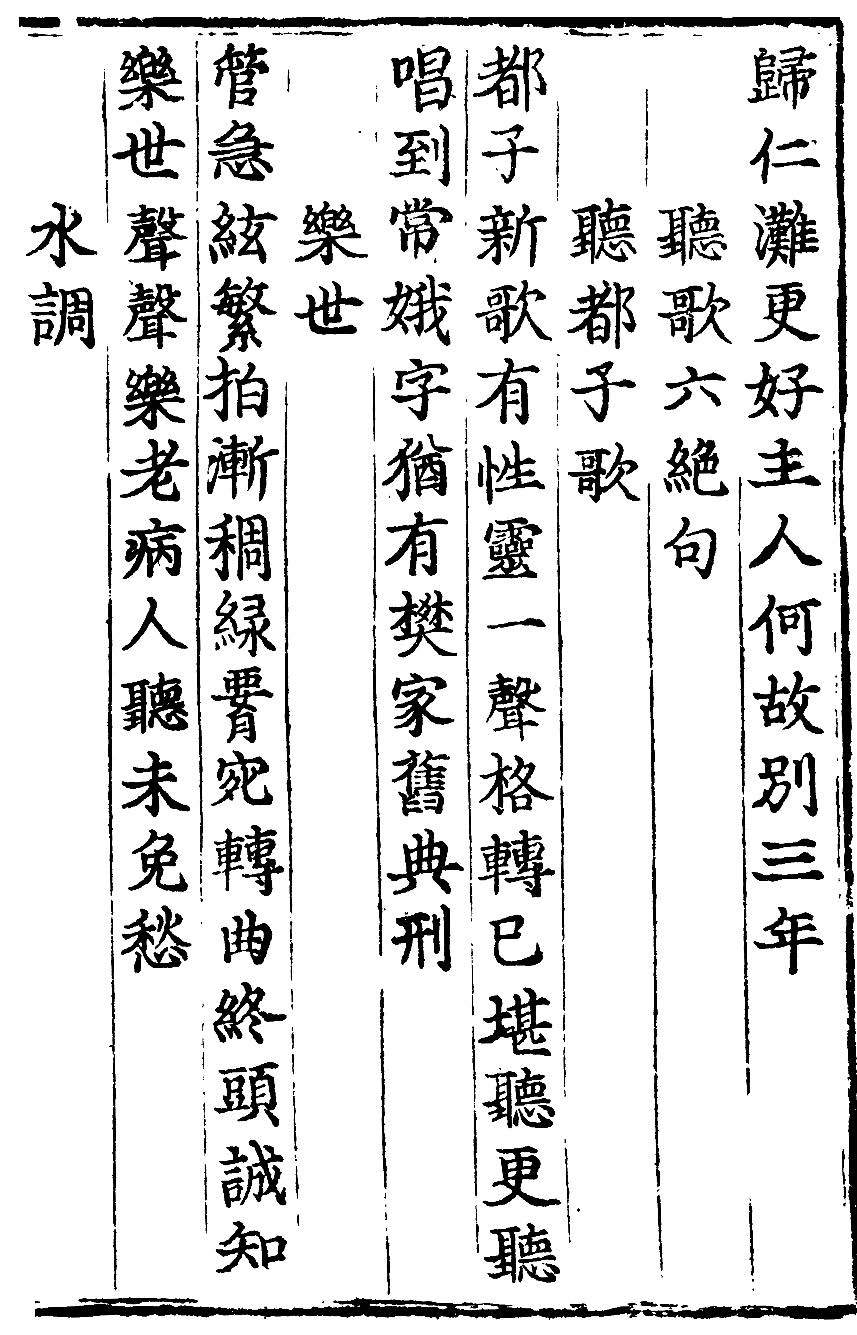 歸仁灘更好主人何故別三年
聽歌六絶句
聽都子歌
都子新歌有性靈一聲格轉巳堪聽更聽
唱到常娥字猶有樊家舊典刑
樂世
管急絃繁拍漸稠緑䙅宛轉曲終頭誠知
樂世聲聲樂老病人聽未免愁
水調